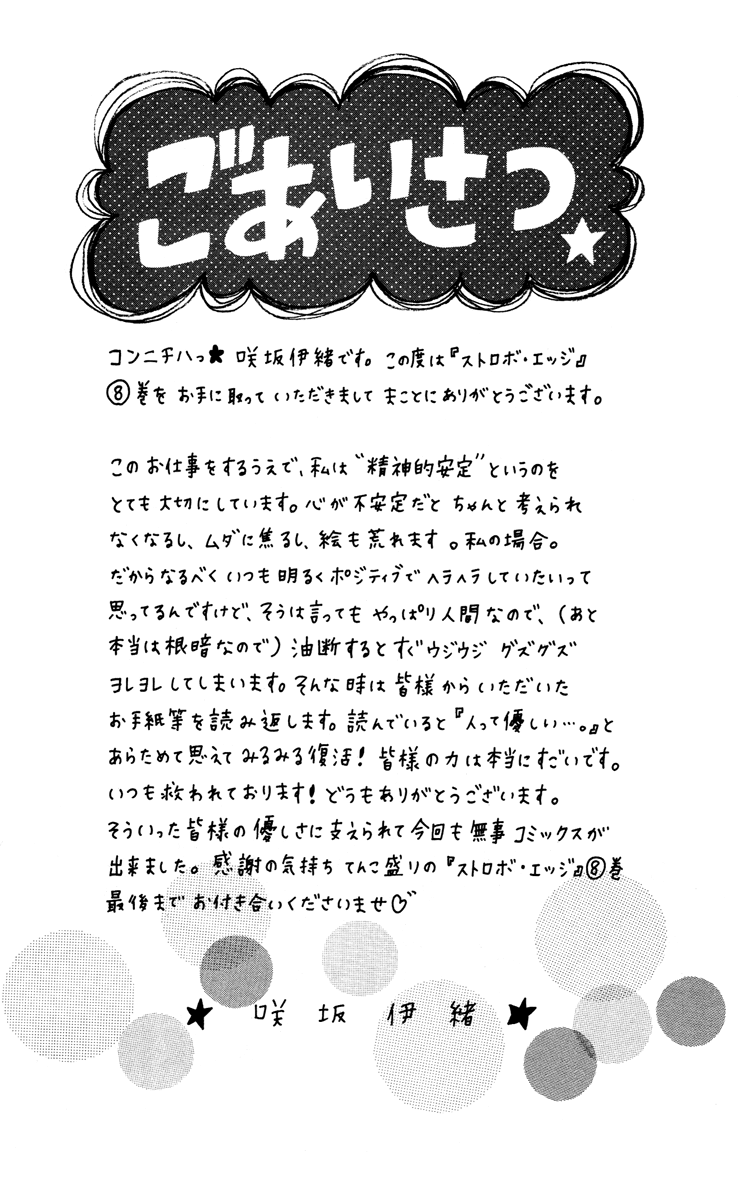 ごあいさつ★
コンニチハっ★ 咲坂伊緒です。この度は『ストロボ・エッジ』
⑧巻を お手に取って いただきまして まことにありがとうございます。
この お仕事をするうえで、私は“精神的安定”というのを
とても 大切にしています。心が不安定だと ちゃんと 考えられ
なくなるし、ムダに焦るし、絵も荒れます。私の場合。
だからなるべく いつも 明るく ポジティブで ヘラヘラしていたいって
思ってるんですけど、そうは言っても やっぱり人間なので、(あと
本当は根暗なので)油断するとすぐウジウジ グズグズ
ヨレヨレしてしまいます。そんな時は 皆様からいただいた
お手紙等を読み返します。読んでいると『人って優しい…。』と
あらためて思えて みるみる復活! 皆様の力は本当にすごいです。
いつも救われております! どうもありがとうございます。
そういった皆様の優しさに支えられて今回も無事コミックスが
出来ました。感謝の気持ち てんこ盛りの『ストロボ・エッジ』⑧巻
最後まで お付き合いくださいませ♡
★ 咲 坂 伊 緒 ★